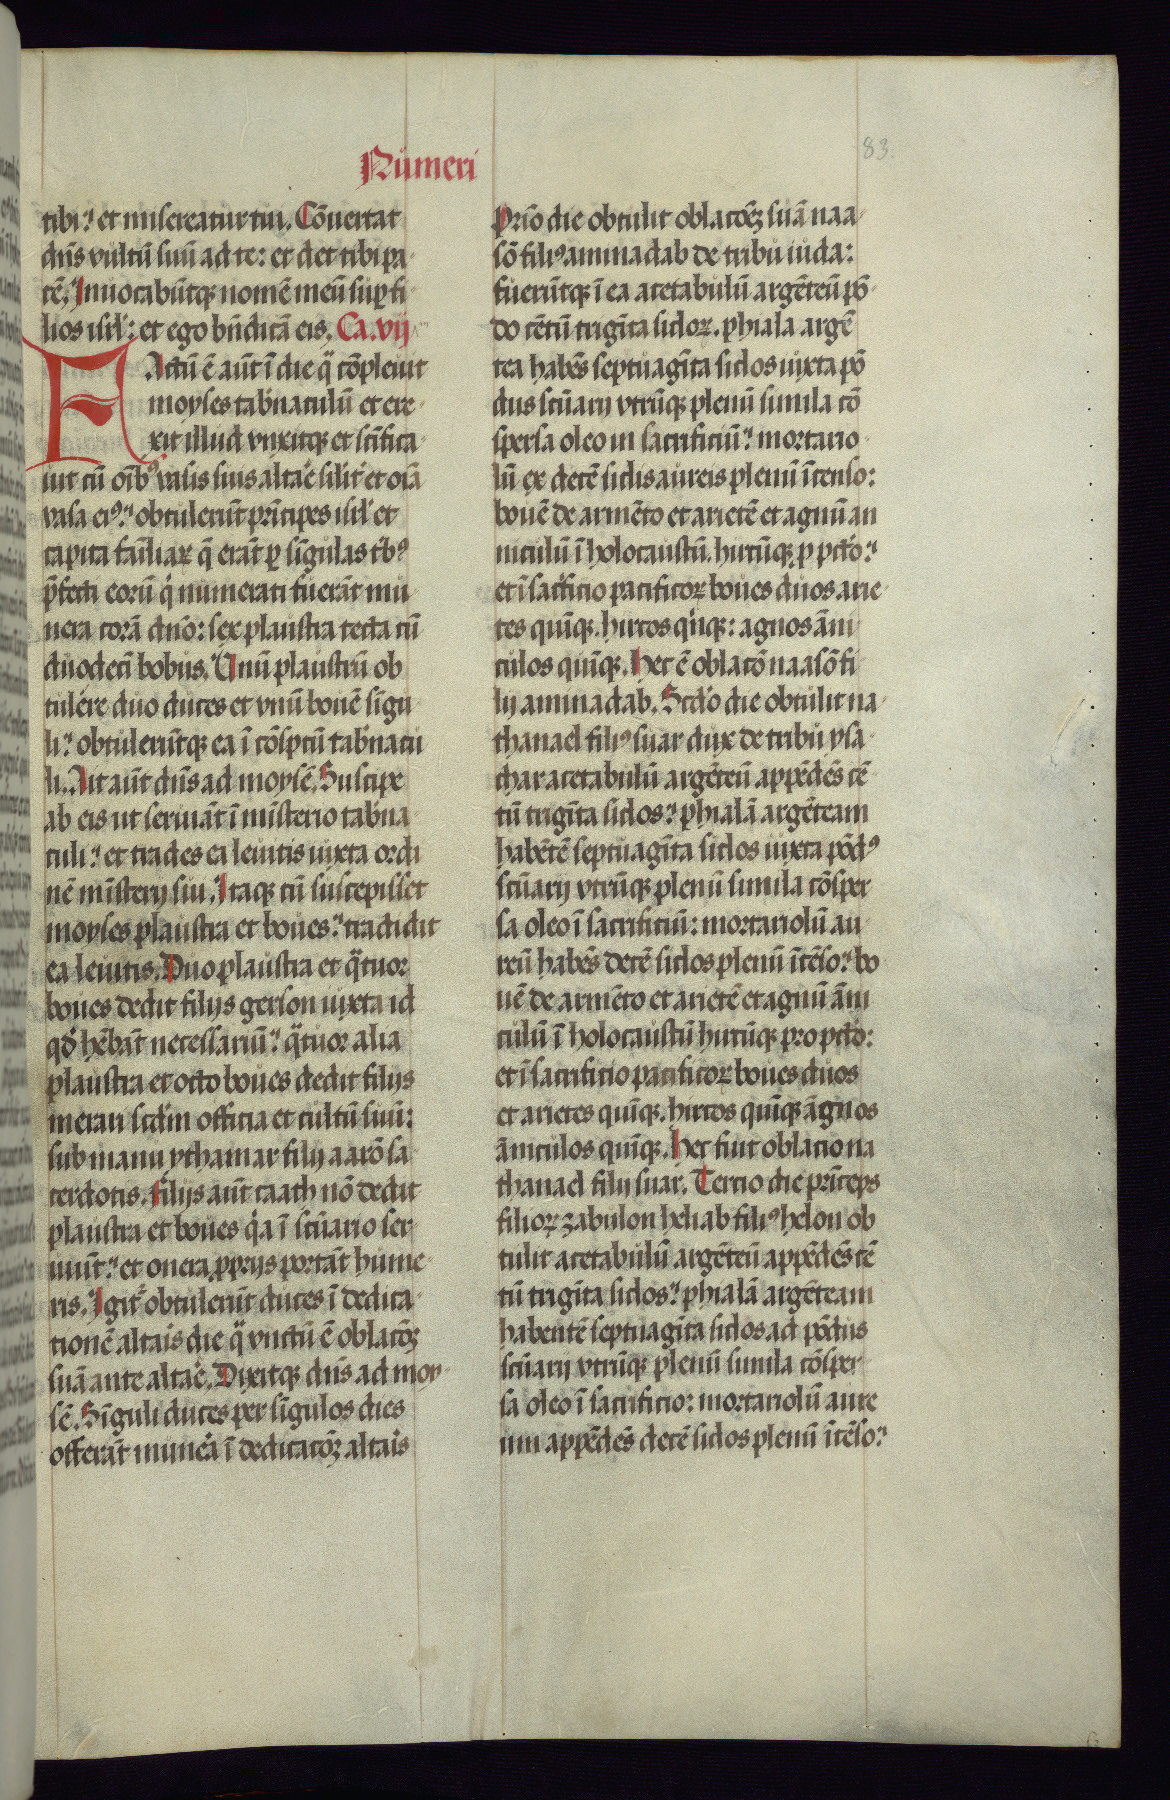 83.
Numeri
tibi: et misereatur tui. Cōuertat
dn̄s vultū suū ad te: et det tibi pa
cē. Inuocabūtqꝫ nomē meū suꝑ fi
lios isrl̓: et ego bn̄dicā eis. Ca. vij
FActū ē aūt ī die qͣ cōpleuit
moyses tab̓naculū et ere
xit illud vnxitqꝫ et scīfica
uit cū oīb⁹ vasis suis altaē silit̓ et oīa
vasa ei⁹: obtulerūt prīcipes isrl̓ et
capita famīliaꝝ q̄ erāt ꝑ sīgulas t̓b⁹
p̄fecti eorū qͥ numerati fuerāt mu
nera corā dn̄o: sex plaustra tecta cū
duodecī bobus. Unū plaustrū ob
tulére duo duces et vnū bouē sīgu
li: obtulerūtqꝫ ea ī cōspc̄tū tab̓nacu
li. Ait aūt dn̄s ad moysē. Suscipe
ab eis ut seruiāt ī mīsterio tab̓na
culi: et trades ea leuitis iuxta ordi
nē mīsterij sui. Itaqꝫ cū suscepisset
moyses plaustra et boues: tradidit
ea leuitis. Duo plaustra et qͣtuor
boues dedit filijs gerson iuxta id
qd̓ hēbāt necessariū: qͣtuor alia
plaustra et octo boues dedit filijs
merari scd̓m officia et cultū suū:
sub manu ythamar filij aarō sa
cerdotis. Filijs aūt caath nō dedit
plaustra et boues qͥa ī scūario ser
uiūt: et onera ꝓprijs portāt hume
ris. Igit̓ obtulerūt duces ī dedica
tionē altaīs die qͣ vnctū ē oblacōꝫ
suā ante altaē. Dixitqꝫ dn̄s ad moy
sē. Sīguli duces per sīgulos dies
offerāt munēa ī dedicacōꝫ altaīs
Prīo die obtulit oblacōeꝫ suā naa
sō fili⁹ aminadab de tribu iuda:
fuerūtqꝫ ī ea acetabulū argēteū pō
do cētū trigīta sicloꝝ. phiala argē
tea habēs septuagīta siclos iuxta pō
dus scūarij vtrūqꝫ plenū simila cō
spersa oleo in sacrificiū: mortario
lū ex decē siclis aureis plenū īcenso:
bouē de armēto et arietē et agnū an
niculū ī holocaustū. hircūqꝫ ꝓ pctō:
et ī sac̓ficio pacificoꝝ boues duos arie
tes quīqꝫ. hircos qͥnqꝫ: agnos āni
culos quīqꝫ. Hec ē oblacō naasō fi
lij aminadab. Scd̓o die obtulit na
thanael fili⁹ suar dux de tribu ysa
char acetabulū argēteū appēdēs cē
tū trigīta siclos: phialā argēteam
habētē septuagīta siclos iuxta pōd⁹
scūarij vtrūqꝫ plenū simila cōsper
sa oleo ī sacrificiū: mortariolū au
reū habēs decē siclos plenū īcēso: bo
uē de armēto et arietē et agnū āni
culū ī holocaustū hircūqꝫ pro pctō:
et ī sacrificio pacificoꝝ boues duos
et arietes quīqꝫ. hircos quīqꝫ agnos
āniculos quīqꝫ. Hec fuit oblacio na
thanael filij suar. Tercio die prīceps
filioꝝ zabulon heliab fili⁹ helon ob
tulit acetabulū argēteū appēdēs cē
tū trigīta siclos: phialā argēteam
habentē septuagīta siclos ad pōdus
scūarij vtrūqꝫ plenū simila cōsper
sa oleo ī sacrificio: mortariolū aure
um appēdēs decē siclos plenū īcēso: